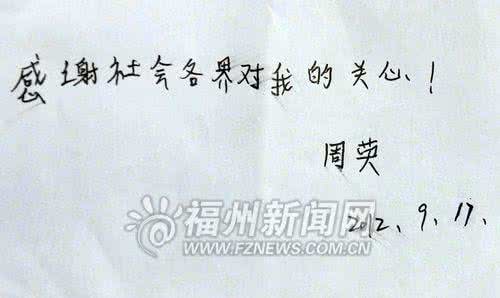 感谢社会各界对我的关心！
周英
2012、9、17、
福州新闻网
WWW.FZNEWS.COM.CN